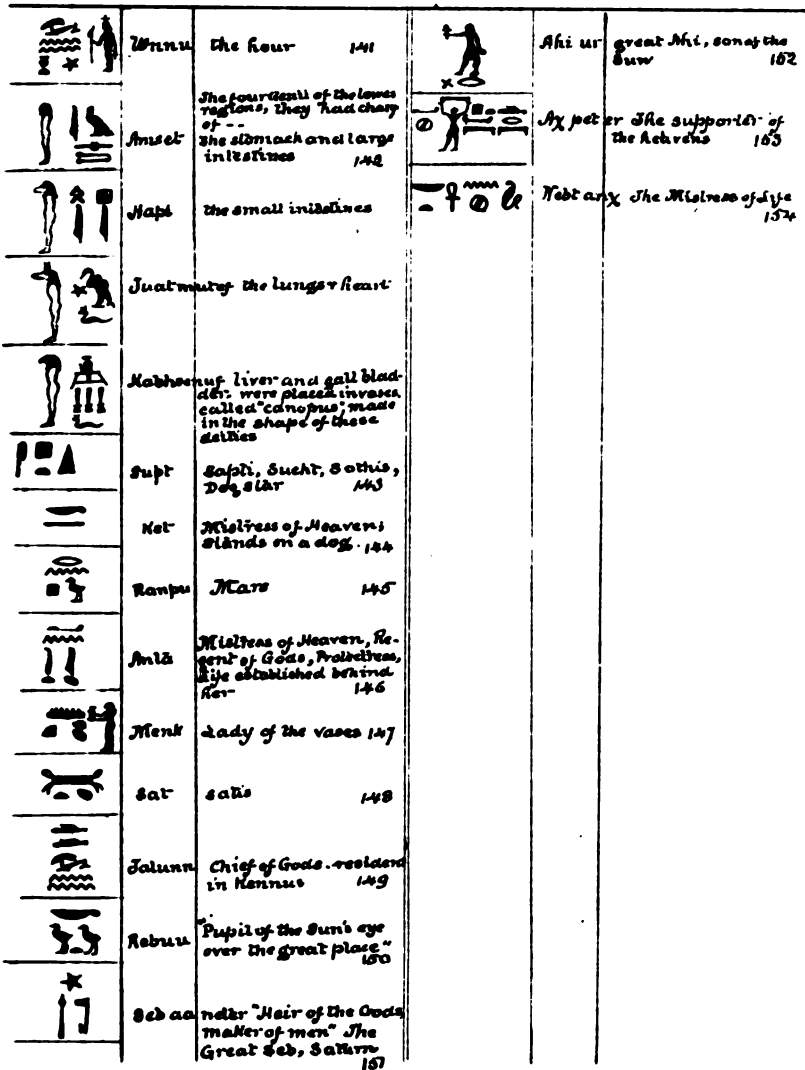 Unnu the hour 141
The four Genii of the lower
regions, they had charge
of --
Amset the stomach and large
intestines 142
Hapi the small intestines
Tuatmutef the lungs & heart
Kabhsenuf liver and gall blad-
der. were placed in vases
called "canopus", made
in the shape of these
deities
Supt Sapti, Sucht, Sothis,
Dog star 143
Ket Mistress of Heaven;
stands on a dog. 144
Ranpu Mars 145
Anta Mistress of Heaven, Re-
gent of Gods, Protectress,
Life established behind
her 146
Menk Lady of the vases 147
Sat Satis 148
Tatunn Chief of Gods - resident
in Kennus 149
Rebuu "Pupil of the Sun's eye
over the great place"
150
Seb aa neter "Heir of the Gods
maker of men" The
Great Seb, Saturn
151
Ahi ur great Ahi, son of the
Sun 152
Aχ pet er The supporter of
the heavens 153
Nebt anχ The Mistress of Life
154